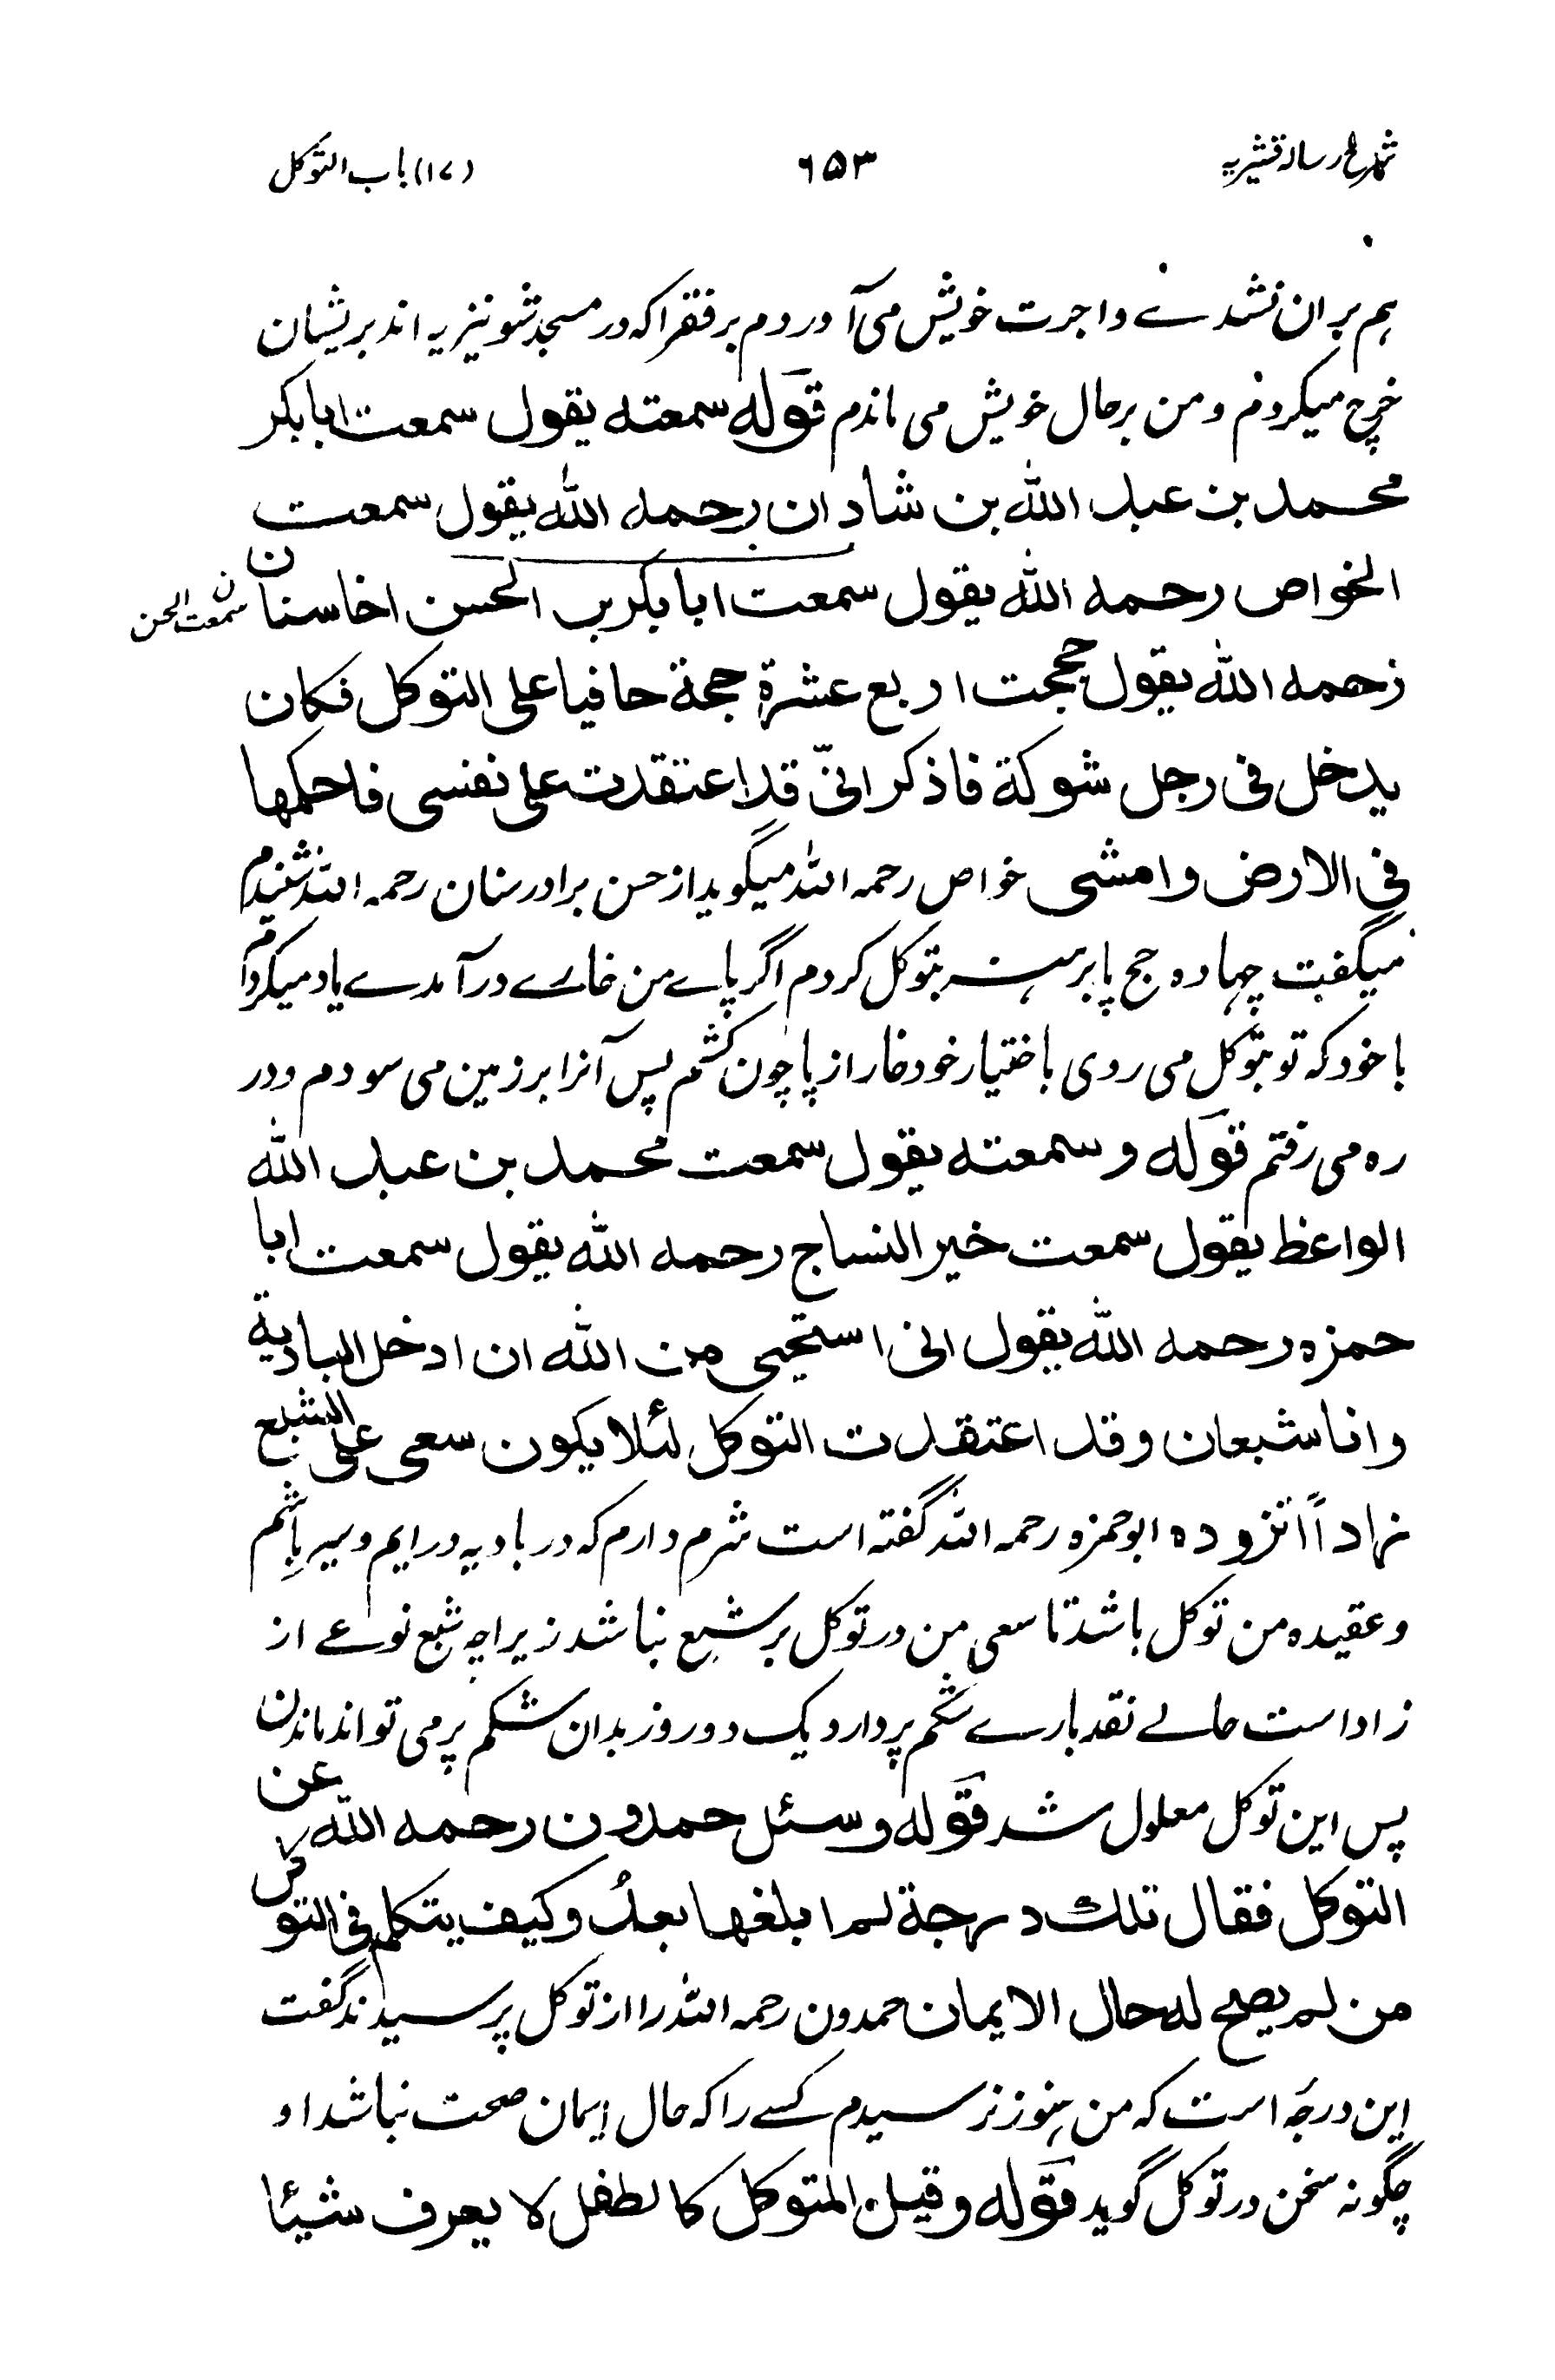 شرح رسالہ قشیریہ ۶۵۳ (۱۷) باب التوکل
ہم بران نشدے و اجرت خویش می آوردم بر فقرا کہ در مسجد شونیزیہ اند بریشان
خرچ میکردم و من بر حال خویش می ماندم قولہ سمعتہ یقول سمعت ابابکر
محمد بن عبد اللہ بن شاد ان رحمہ اللہ یقول سمعت
الخواص رحمہ اللہ یقول سمعت ابابکر ب الحسن اخا سنان
ن سمعت الحسن
رحمہ اللہ یقول حججت اربع عشرۃ حجۃ حافیا علی التوکل فکان
یدخل فی رجل شوکۃ فاذکر انیّ قد اعتقدت علی نفسی فاحکہا
فی الارض و امشی خواص رحمہ اللہ میگوید از حسن برادر سنان رحمہ اللہ شنیدم
میگفت چہاردہ حج پا برہنہ بتوکل کردم اگر پاے من خارے در آمدے یاد میکردم
با خود کہ تو بتوکل می روی باختیار خود خار از پا چون کشم پس آنرا بر زمین می سودم و در
رہ می رفتم قولہ و سمعتہ یقول سمعت محمد بن عبد اللہ
الواعظ یقول سمعت خیر النساج رحمہ اللہ یقول سمعت ابا
حمزہ رحمہ اللہ یقول انی استحیی من اللہ ان ادخل البادیۃ
و انا شبعان و قد اعتقدت التوکل لئلا یکون سعی علی الشبع
زاداً اتزودہ ابوحمزہ رحمہ اللہ گفتہ است شرم دارم کہ در بادیہ در ایم و سیر باشم
و عقیدہ من توکل باشد تا سعی من در توکل بر شبع نباشد زیراچہ شبع نوعے از
زاد است حالے نقد بارے شکم پر دارد یک دو روز بدان شکم پر می تواند ماندن
پس این توکل معلول شد قولہ و سئل حمدون رحمہ اللہ عن
التوکل فقال تلک درجۃ لم ابلغہا بعدُ و کیف یتکلم فی التوکل
من لم یصح لہ حال الایمان حمدون رحمہ اللہ را از توکل پرسیدند گفت
این درجہ است کہ من ہنوز نرسیدم کسے را کہ حال ایمان صحت نباشد او
چگونہ سخن در توکل گوید قولہ و قیل المتوکل کالطفل لا یعرف شیئا